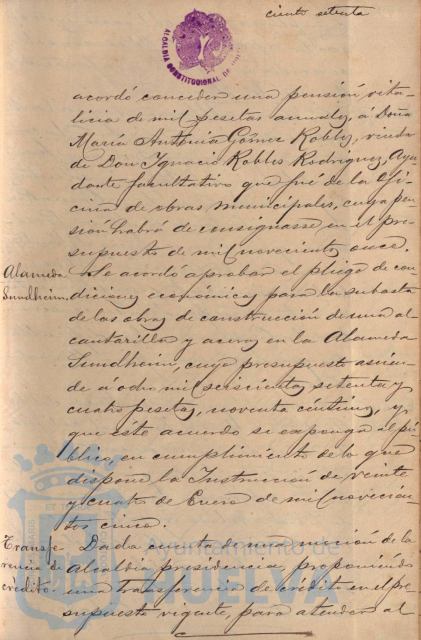 ciento setenta
ALCALDIA CONSTITUCIONAL DE
acordó conceder una pensión vita-
licia de mil pesetas anuales, á Doña
María Antonia Gómez Robles, viuda
de Don Ignacio Robles Rodriguez, Ayu
dante facultativo que fué de la Ofi
cina de obras municipales, cuya pen
sión habrá de consignarse en el pre-
supuesto de mil novecientos once.
Alameda Sundheim.
Se acordó aprobar el pliego de con
diciones económicas para la subasta
de las obras de construcción de una al
cantarilla y aceras en la Alameda
Sundheim, cuyo presupuesto ascien
de á ocho mil seiscientas setenta y
cuatro pesetas, noventa céntimos, y
que éste acuerdo se exponga al pú
blico, en cumplimiento de lo que
dispone la Instrucción de veinte
y cuatro de Enero de mil novecien-
tos cinco.
Transfe
rencia de
crédito.
Dada cuenta de una moción de la
Alcaldía presidencia, proponiendo
una transferencia de crédito en el pre-
supuesto vigente, para atender al
Ayuntamiento de
HUELVA